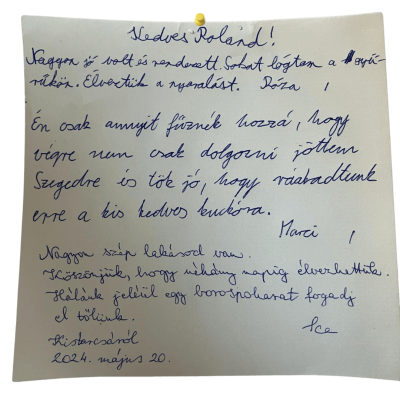 Kedves Roland!
Nagyon jó volt és rendezett. Sokat lógtam a gyű-
rűkön. Élveztük a nyaralást. Róza
Én csak annyit fűznék hozzá, hogy
végre nem csak dolgozni jöttem
Szegedre és tök jó, hogy rátaláltunk
erre a kis kedves kuckóra.
Marci
Nagyon szép lakásod van.
Köszönjük, hogy néhány napig élvezhettük.
Hálánk jeléül egy borospoharat fogadj
el tőlünk.
Ica
Kistarcsáról
2024. május 20.